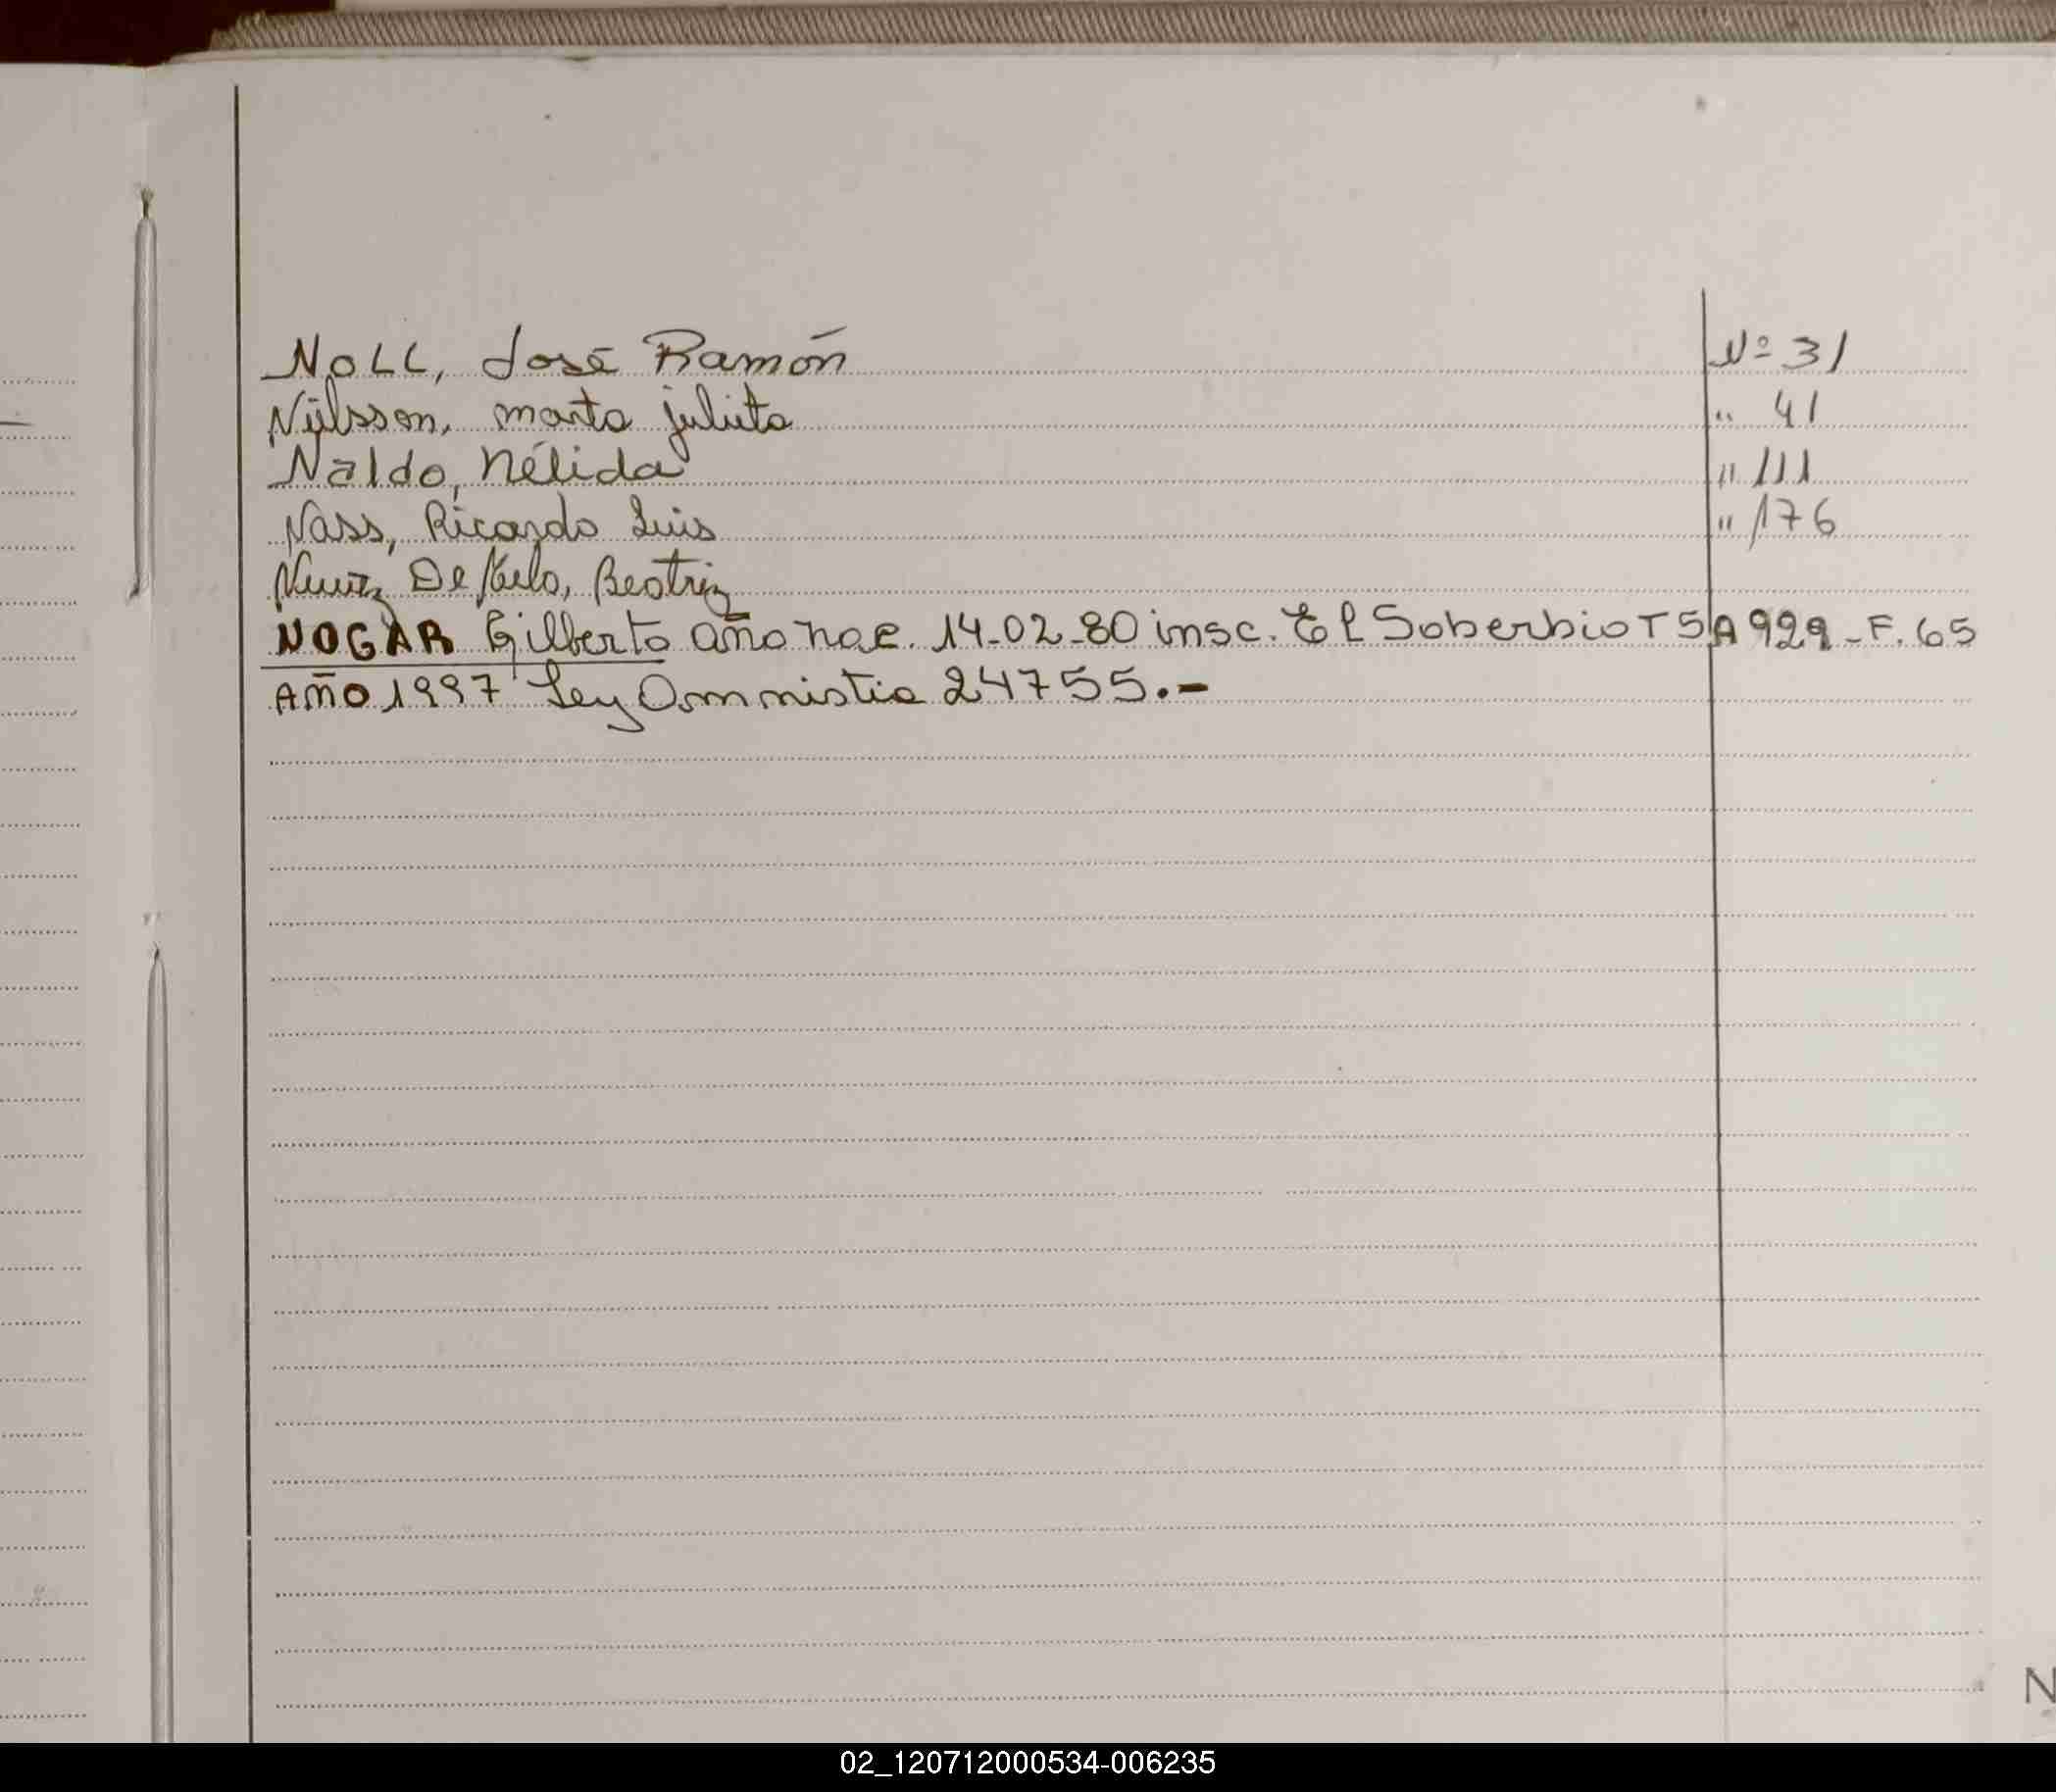 NOLL, José Ramón Nº 31
Nülsson, marta julieta " 41
Naldo, Nélida " 111
Nass, Ricardo Luis " 176
De Melo, Beatriz
NOGAR Gilberto año nac. 14-02-80 insc. El Soberbio T 5 A 929 - F. 65
AÑO 1997 Ley Omnistia 24755.-
N
02_120712000534-006235